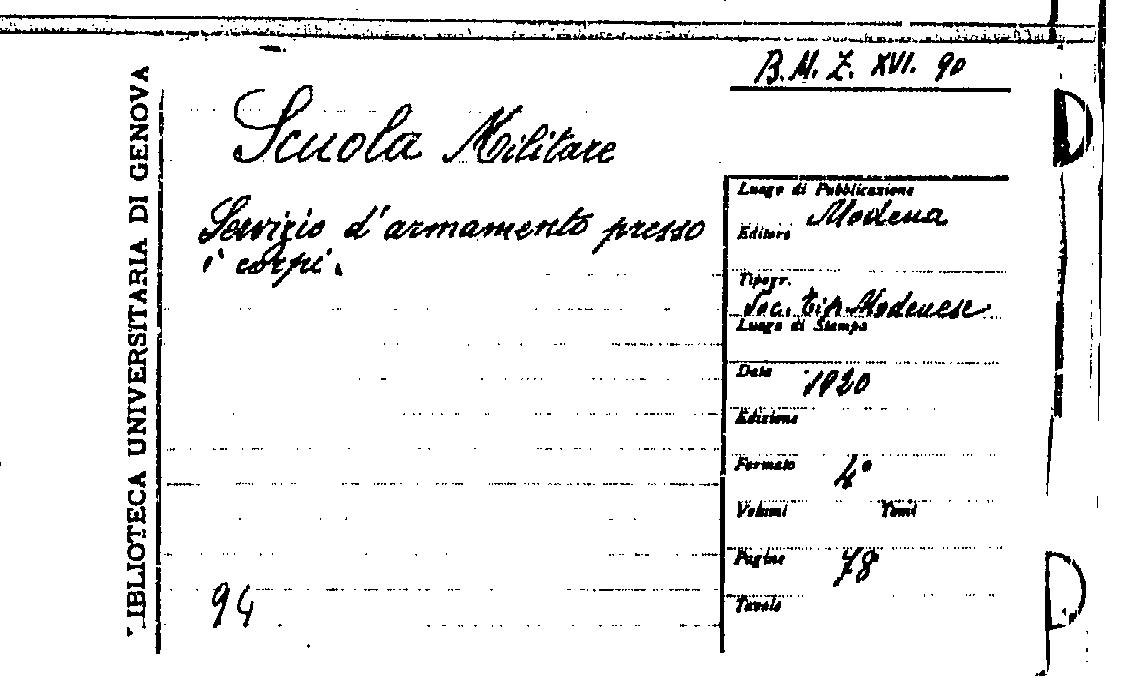 BIBLIOTECA UNIVERSITARIA DI GENOVA
B.M. Z. XVI. 90
Scuola Militare
Servizio d'armamento presso
i corpi.
Luogo di Pubblicazione
Modena
Editore
Tipogr.
Soc. Tip. Modenese
Luogo di Stampa
Data 1920
Edizione
Formato 4°
Volumi Tomi
Pagine 78
Tavole
94